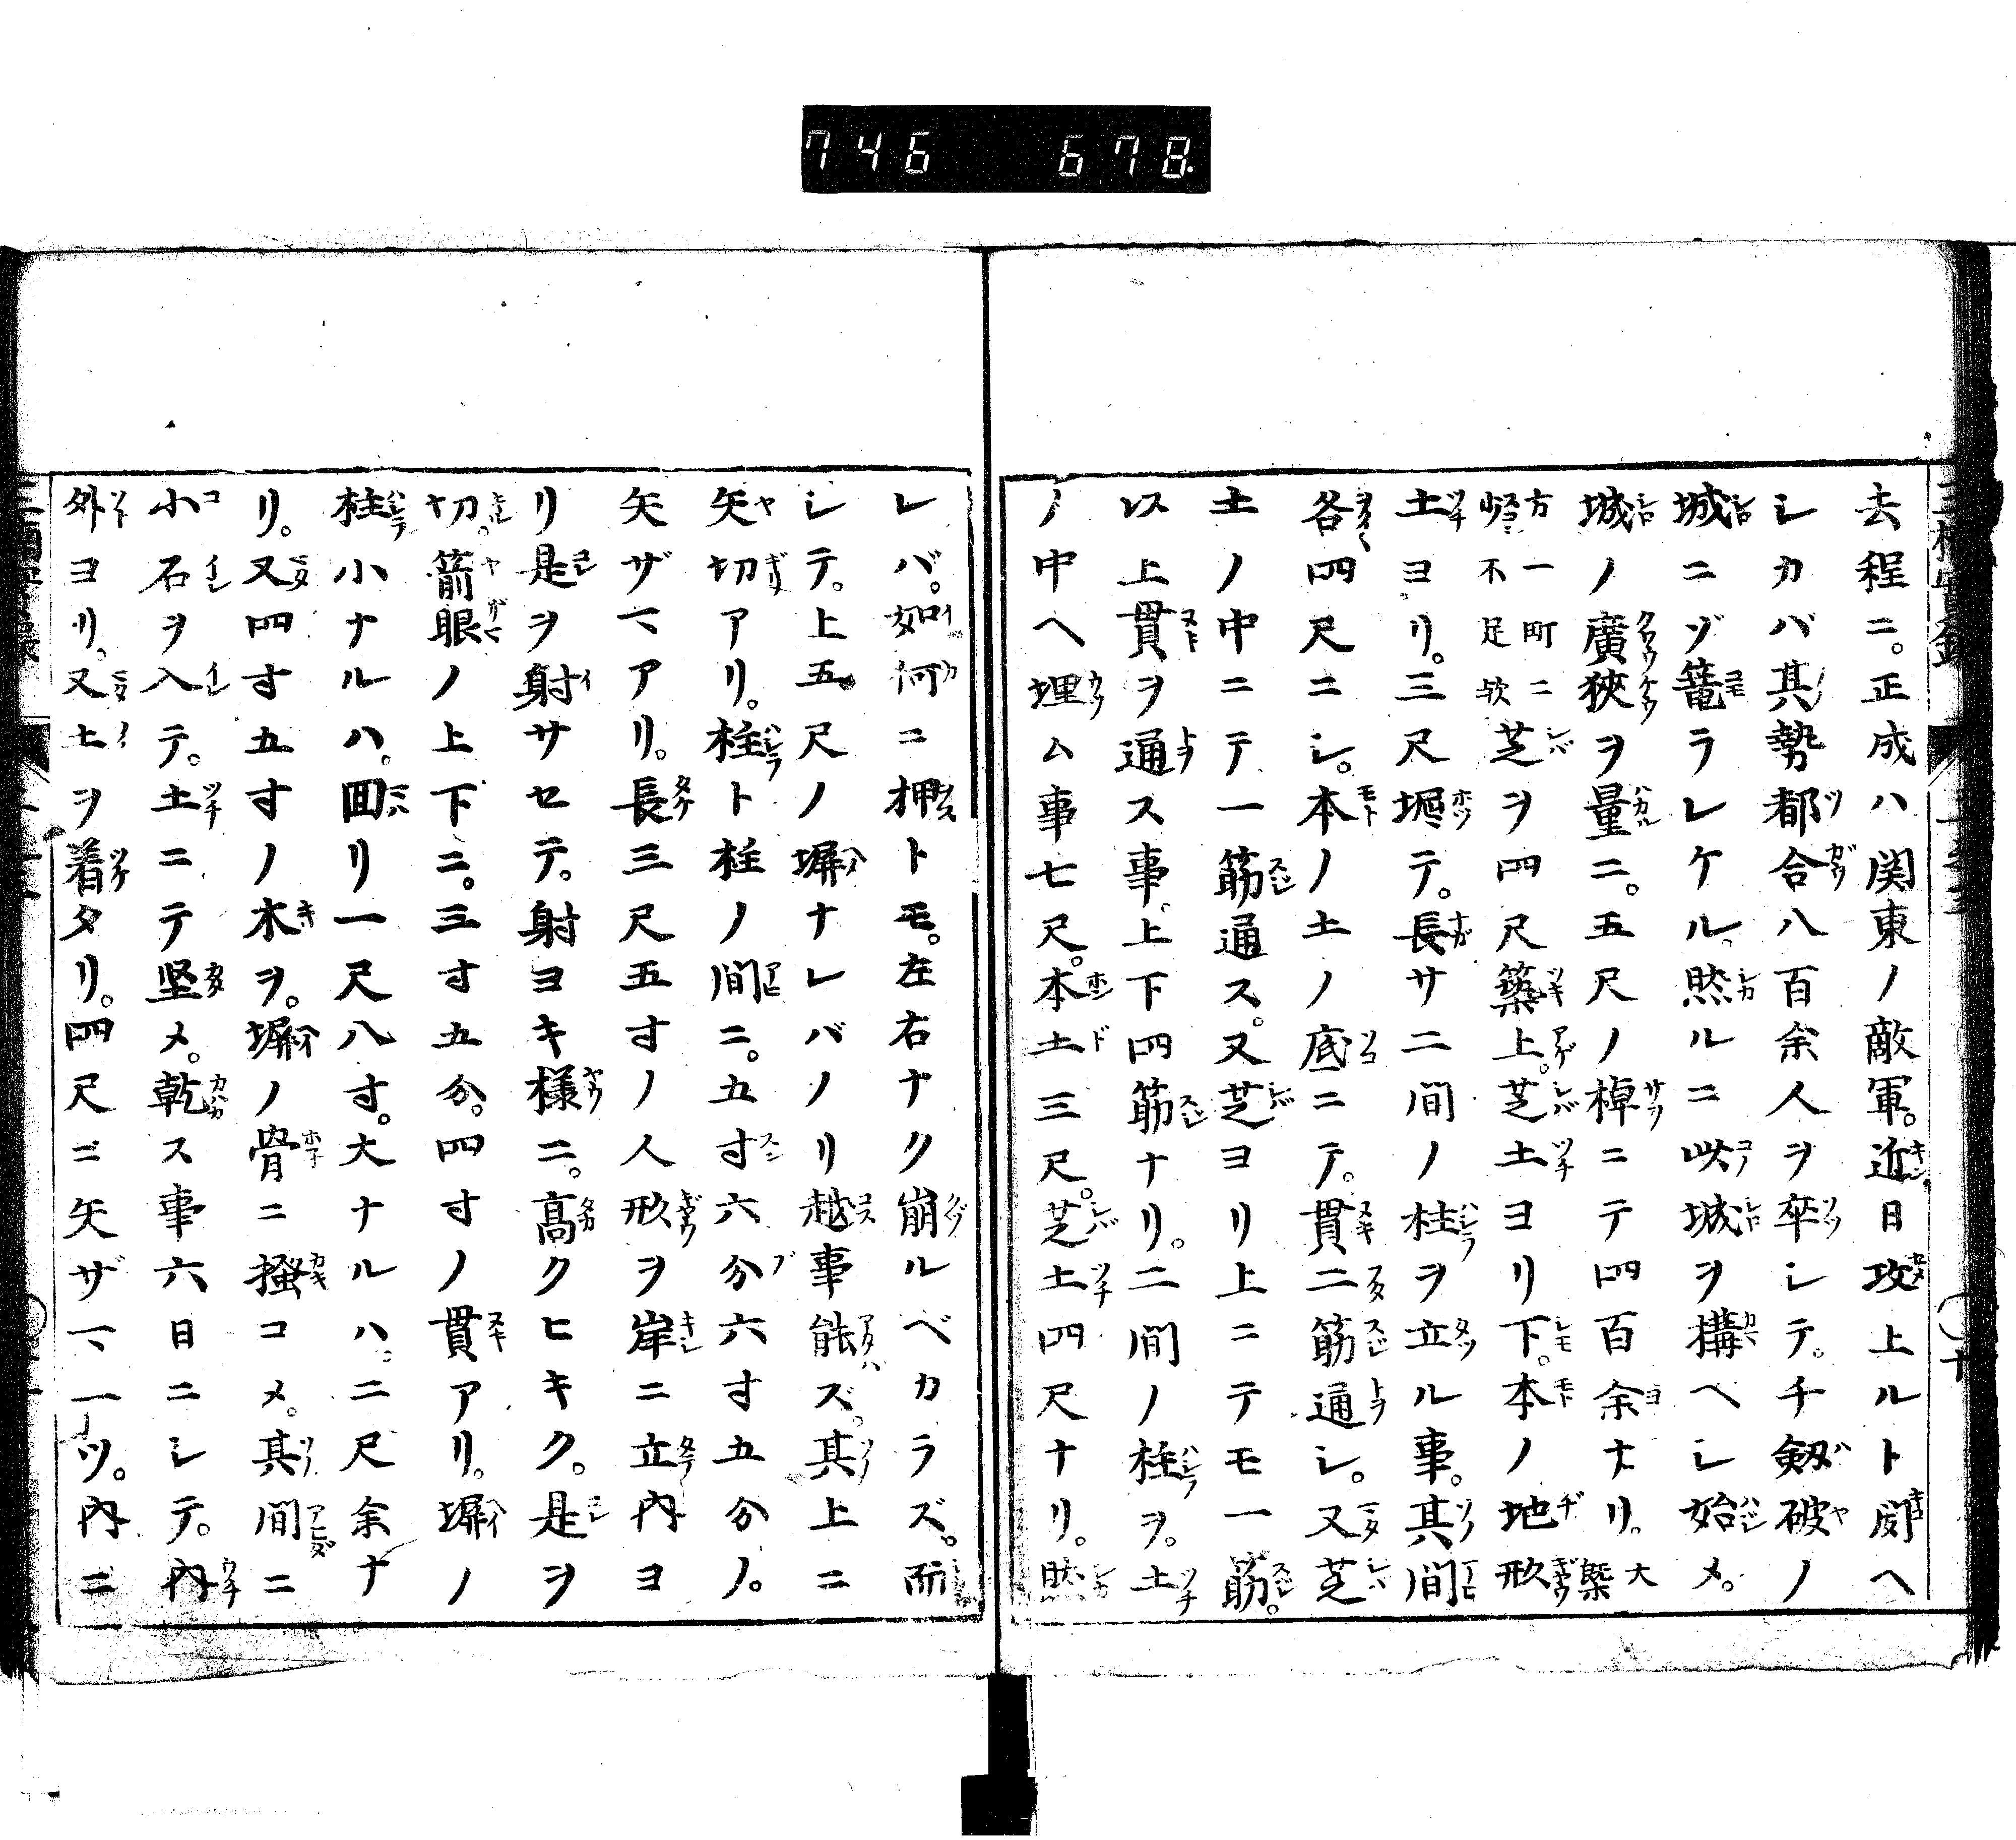 746 678.
去程ニ。正成ハ関東ノ敵軍。近日攻上ルト聞ヘ
シカバ其勢都合八百余人ヲ卒シテ。千劔破ノ
城ニゾ篭ラレケル。然ルニ此城ヲ構ヘシ始メ。
城ノ廣狹ヲ量ニ。五尺ノ棹ニテ四百余ナリ。大槩
方一町ニ少シ不足欤芝ヲ四尺築上。芝土ヨリ下。本ノ地形
土ヨリ。三尺堀テ。長サ二間ノ柱ヲ立ル事。其間
各四尺ニシ。本ノ土ノ底ニテ。貫二筋通シ。又芝
土ノ中ニテ一筋通ス。又芝ヨリ上ニテモ一筋。
以上貫ヲ通ス事。上下四筋ナリ。二間ノ柱ヲ。土
ノ中ヘ埋ム事七尺。本土三尺。芝土四尺ナリ。然
レバ。如何ニ押トモ。左右ナク崩ルベカラズ。而
シテ。上五尺ノ塀ナレバノリ越事能ズ。其上ニ
矢切アリ。柱ト柱ノ間ニ。五寸六分六寸五分ノ。
矢ザマアリ。長三尺五寸ノ人形ヲ岸ニ立内ヨ
リ是ヲ射サセテ。射ヨキ様ニ。高クヒキク。是ヲ
切。箭眼ノ上下ニ。三寸五分。四寸ノ貫アリ。塀ノ
柱小ナルハ。囬リ一尺八寸。大ナルハ。二尺余ナ
リ。又四寸五寸ノ木ヲ。塀ノ骨ニ掻コメ。其間ニ
小石ヲ入テ。土ニテ堅メ。乾ス事六日ニシテ。内
外ヨリ。又土ヲ着タリ。四尺ニ矢ザマ一ツ。内ニ